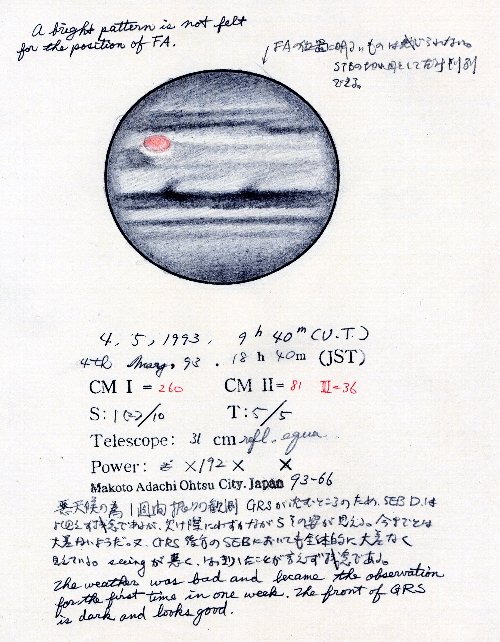 A bright pattern is not felt
for the position of FA.
FAの位置に明るいものは感じられない。
STBの切れ目として
できる。
4, 5, 1993, 9h 40m (U.T.)
4th May, 93. 18h 40m (JST)
CM I = 260 CM II = 81 III=36
S: 1(2)/10 T: 5/5
Telescope: 31 cm refl. equa
Power: ×192 × ×
Makoto Adachi Ohtsu City. Japan 93-66
悪天候の為1週間振りの観測 GRSが沈むところのため、SEB D.は
が見える。今までと
大差ないようだ。又、GRS後方のSEBにおいても全体的に大差なく
見えている。seeingが悪く、はっきりしたことが言えず残念である。
The weather was bad and became the observation
for the first time in one week. The front of GRS
is dark and looks good.